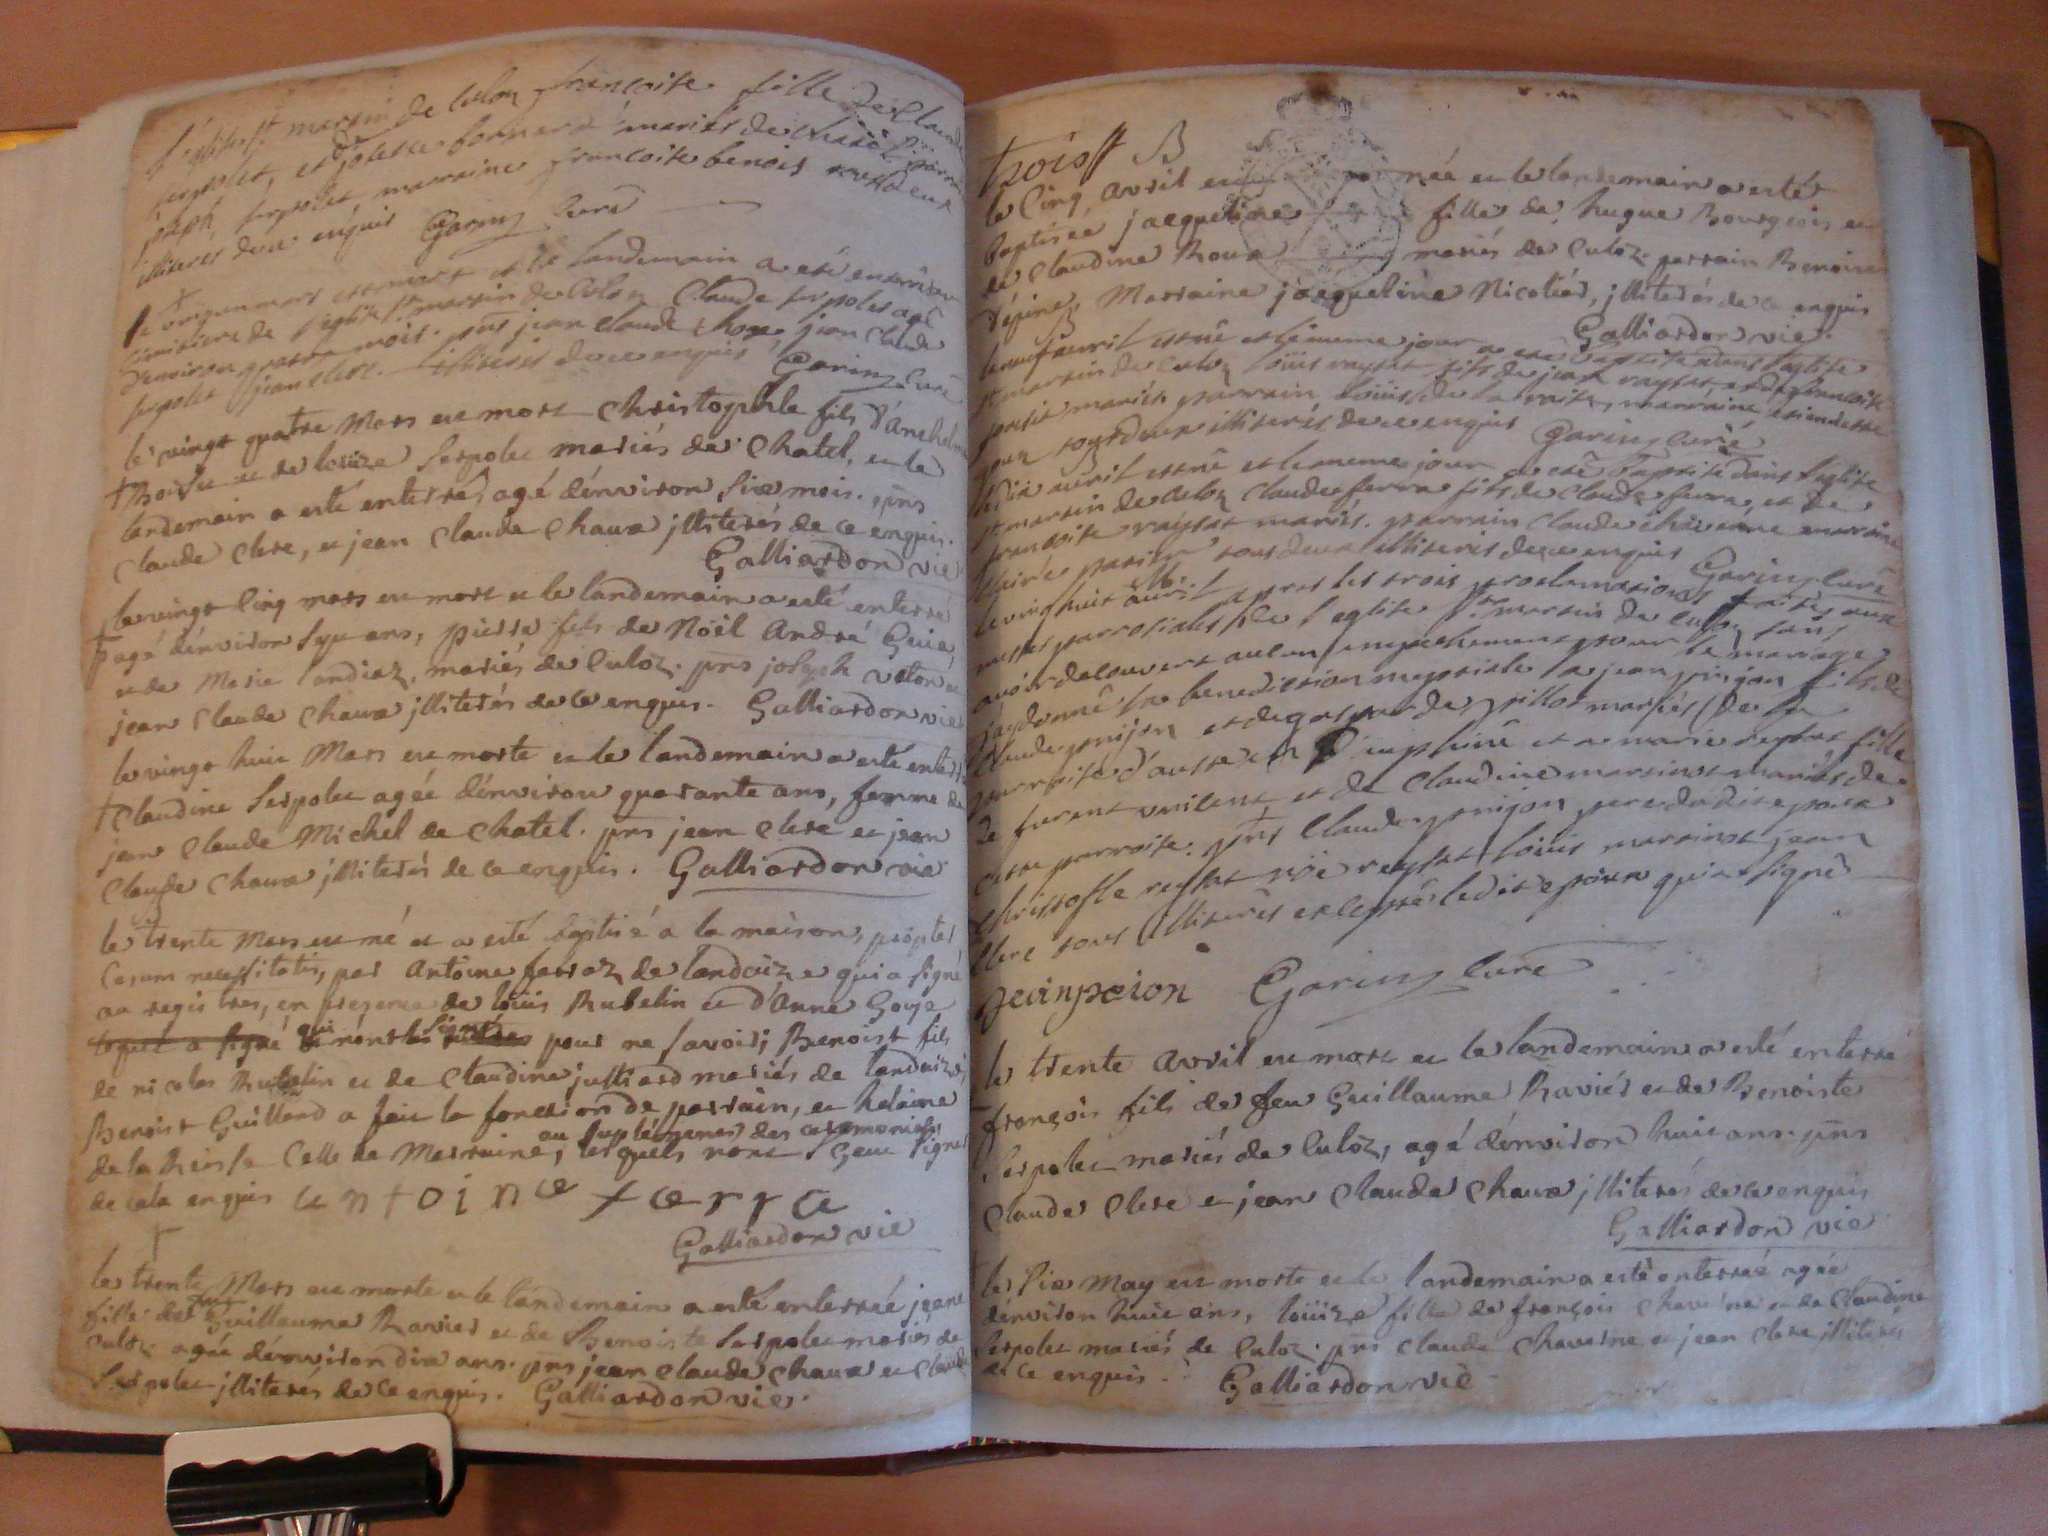 l'eglise St martin de Culoz françoise fille de Claude
serpolet, et josette bonnard mariés de chatel parrain
joseph serpolet, marraine françoise benois tous deux
illiterés de ce enquis Garin curé
le vingt un mars est mort et le landemain a eté enterré au
cimitiere de l'eglise St martin de Culoz Claude serpolet agé
d'environ quatre mois. pns jean claude chaux, jean claude
serpolet jean clerc. illiterés de ce enquis Garin curé
le vingt quatre Mars est mort Christophle fils d'Anthelme
et de loüize Serpolet mariés de Chatel, et le
landemain a esté enterré, agé d'énviron Six mois. pns
Claude Clerc, et jean Claude Chaux jlliterés de ce enquis.
Galliardon vie
le vingt Cinq mars est mort et le landemain a esté enterré
agé d'énviron Sept ans, pierre fils de Nöél André
et de Marie landraz, mariés de Culoz. pns joseph et
jean Claude Chaux jlliterés de ce enquis. Galliardon vie
le vingt huit Mars est morte et le landemain a esté enterrée
Claudine Serpolet agée d'énviron quarante ans, femme de
jean Claude Michel de Chatel. pns jean Clerc et jean
Claude Chaux jlliterés de ce enquis. Galliardon vie
B
le trente Mars est né et a esté baptisé a la maison, propter
Casum necessitatis, par Antoine ferraz de landaize qui a signé
au registres, en presence de loüis Rubelin et d'Anne Goyje
lequel a signé qui n'ont signé pour ne savoir; Benoist fils
de nicolas Rubelin et de Claudine julliard mariés de landaize,
Benoist Guilland a fait la fonction de parrain, et helaine
au suplément des ceremonies,
de la Celle de Marraine, lesquels n'ont Sceu Signer
de cela enquis antoine ferra
Galliardon vie
le trente Mars est morte et le landemain a esté enterrée jeane
fille de feu Guillaume Raviér et de Benoiste Serpolet mariés de
Culoz agée d'énviron dix ans. pns jean Claude Chaux et Claude
Serpolet jlliterés de ce enquis. Galliardon vie.
trois B
le Cinq avril est née et le landemain a esté
baptisée jacqueline fille de hugue Bourgeois et
de Claudine Roux mariés de Culoz. parrain Benoist
d'épine, Marraine jacqueline Nicoliér, jlliterés de ce enquis
Galliardon vie.
B
le neuf avril est né et le meme jour a eté baptisé dans l'eglise
St martin de Culoz loüis raysat fils de jean raysat, et de françoise
mariés. parrain loüis marraine
tous deux illiterés de ce enquis Garin curé
B
le dix avril est né et le meme jour a eté baptisé dans l'eglise
St martin de Culoz Claude ferra fils de Claude ferra, et de
françoise raysat mariés. parrain Claude marraine
tous deux illiterés de ce enquis Garin curé
M.
le vingt huit avril apres les trois proclamations faites aux
messes parroissiales de l'eglise St martin de Culoz sans
avoir decouvert aucun empechement pour le mariage
j'ay donné la benediction nuptiale a jean pinjon fils de
Claude pinjon et de gasparde mariés de la
parroisse d'auste en d'auphiné et a marie reysat fille
de furent vincent et de Claudine martinot mariés de
cette parroisse. pns Claude pinjon pere dudit epoux
Christofle reysat noé reysat loüis martinot jean
clerc tous illiterés excepté ledit epoux qui a signé
jean Garin curé
le trente avril est mort et le landemain a esté enterré
françois fils de feu Guillaume Raviér et de Benoiste
Serpolet mariés de Culoz, agé d'énviron huit ans. pns
Claude Clerc et jean Claude Chaux jlliterés de ce enquis
Galliardon vie
le Six May est morte et le landemain a esté enterrée agée
d'énviron huit ans, loüize fille de françois et de Claudine
Serpolet mariés de Culoz. pns Claude et jean Clerc jlliterés
de ce enquis. Galliardon vie